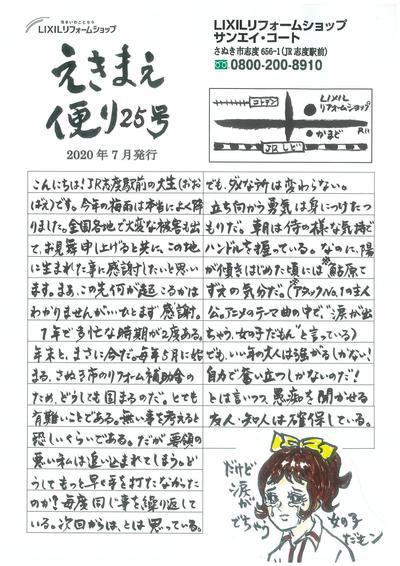 住まいのことなら
LIXILリフォームショップ
LIXILリフォームショップ
サンエイ・コート
さぬき市志度 656-1(JR志度駅前)
0800-200-8910
えきまえ
便り25号
2020年7月発行
コトデン
LIXIL
リフォームショップ
かまど
R11
JRしど
こんにちは!JR志度駅前の大生(おお
ばえ)です。今年の梅雨は本当によく降
りました。全国各地で大変な被害も出
て、お見舞申し上げると共に、この地
に生まれた事に感謝したいと思い
ます。まあ、この先何が起こるかは
わかりませんが…ひとまず感謝。
1年で多忙な時期が2度ある。
年末と、まさに今だ。毎年5月に始
まる、さぬき市のリフォーム補助金の
ため、どうしても固まるのだ。とても
有難いことである。無い事を考えると
恐しいくらいである。だが、要領の
悪い私は追い込まれてしまう。ど
うしてもっと早く手を打たなかった
のか!毎度同じ事を繰り返して
いる。次回からは、とは思っている。
でも、ダメな所は変わらない。
立ち向かう勇気は身につけたつ
もりだ。車内は侍の様な気持で
ハンドルを握っている。なのに、陽
が傾きはじめた頃には
ずえの気分だ。(アタックNo.1の主人
公。アニメのテーマ曲の中で、“涙が出
ちゃう、女の子だもん”と言っている)
でも、いい年の大人は強がるしかない!
自力で奮い立つしかないのだ!
とは言いつつ、愚痴を聞かせる
友人・知人は確保している。
だけど
涙が
でちゃう
女の子
だモン